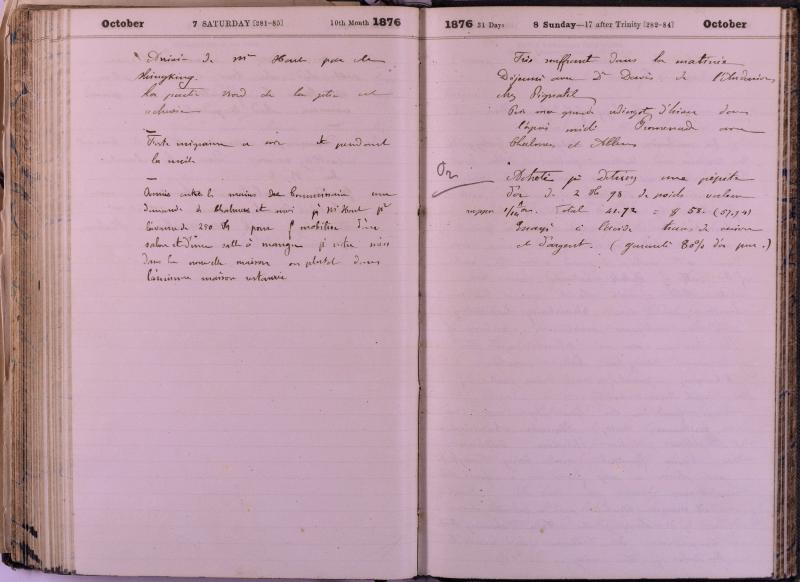 October 7 SATURDAY [281-85] 10th Month 1876
Arrivée de Mr Hart par le
Hingking.
La partie nord de la jetée est
achevée
Forte migraine ce soir et pendant
la nuit
Remis entre les mains du Commissaire une
demande de Chalmers et moi pr Mr Hart pr
l'avance de 250 pour mobilier d'un
salon et d'une salle à manger pr notre
dans la nouvelle maison ou plutôt dans
l'ancienne maison restaurée
1876 31 Days 8 Sunday—17 after Trinity [282-84] October
Très souffrant dans la matinée
Déjeuner avec Dr Davis de
chez
Pris ma grande d'hiver dans
l'après midi Promenade avec
Chalmers et Allen
Or
Acheté pr Detring une pépite
d'or de 2 98 de poids valeur
Total 41.72 = $ 58. (57.94)
Essayé à l'acide traces de cuivre
et d'argent. (garanti 80% d'or pur.)